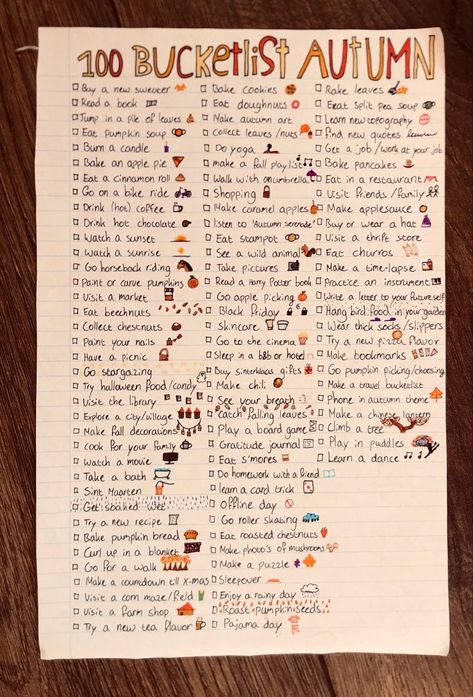 100 BUCKETLIST AUTUMN
Buy a new sweater
Read a book
Jump in a pile of leaves
Eat pumpkin soup
Burn a candle
Bake an apple pie
Eat a cinnamon roll
Go on a bike ride
Drink (hot) coffee
Drink hot chocolate
Watch a sunset
Watch a sunrise
Go horseback riding
Paint or carve pumpkins
Visit a market
Eat beechnuts
Collect chestnuts
Paint your nails
Have a picnic
Go stargazing
Try halloween food/candy
Visit the library
Explore a city/village
Make fall decorations
Cook for your family
Watch a movie
Take a bath
Sint Maarten
Get soaked wet
Try a new recipe
Bake pumpkin bread
Curl up in a blanket
Go for a walk
Make a countdown till X-mas
Visit a corn maze/field
Visit a farm shop
Try a new tea flavor
Bake cookies
Eat doughnuts
Make autumn art
Collect leaves/nuts
Do yoga
make a fall playlist
Walk with an umbrella
Shopping
Make caramel apples
listen to 'Autumn serenade'
Eat stampot
See a wild animal
Take pictures
Read a Harry Potter book
Go apple picking
Black Friday
Skincare
Go to the cinema
Sleep in a b&b or hotel
Buy sinterklaas gifts
Make chili
See your breath
Catch falling leaves
Play a board game
Gratitude journal
Eat s'mores
Do homework with a friend
learn a card trick
Offline day
Go roller skating
Eat roasted chestnuts
Make photo's of mushrooms
Make a puzzle
Sleepover
Enjoy a rainy day
Roast pumpkinseeds
Pajama day
Rake leaves
Eeat Split pea soup
Learn new topography
find new quotes
Get a job/work at your job
Bake pancakes
Eat in a restaurant
Visit friends/family
Make applesauce
Buy or wear a hat
Visit a thrift store
Eat churros
Make a time-lapse
Practice an instrument
Write a letter to your future self
Hang bird food in your garden
Wear thick socks/slippers
Try a new pizza flavor
Make bookmarks
Go pumpkin picking/choosing
Make a travel bucketlist
Phone in autumn theme
Make a chinese lantern
Climb a tree
Play in puddles
Learn a dance